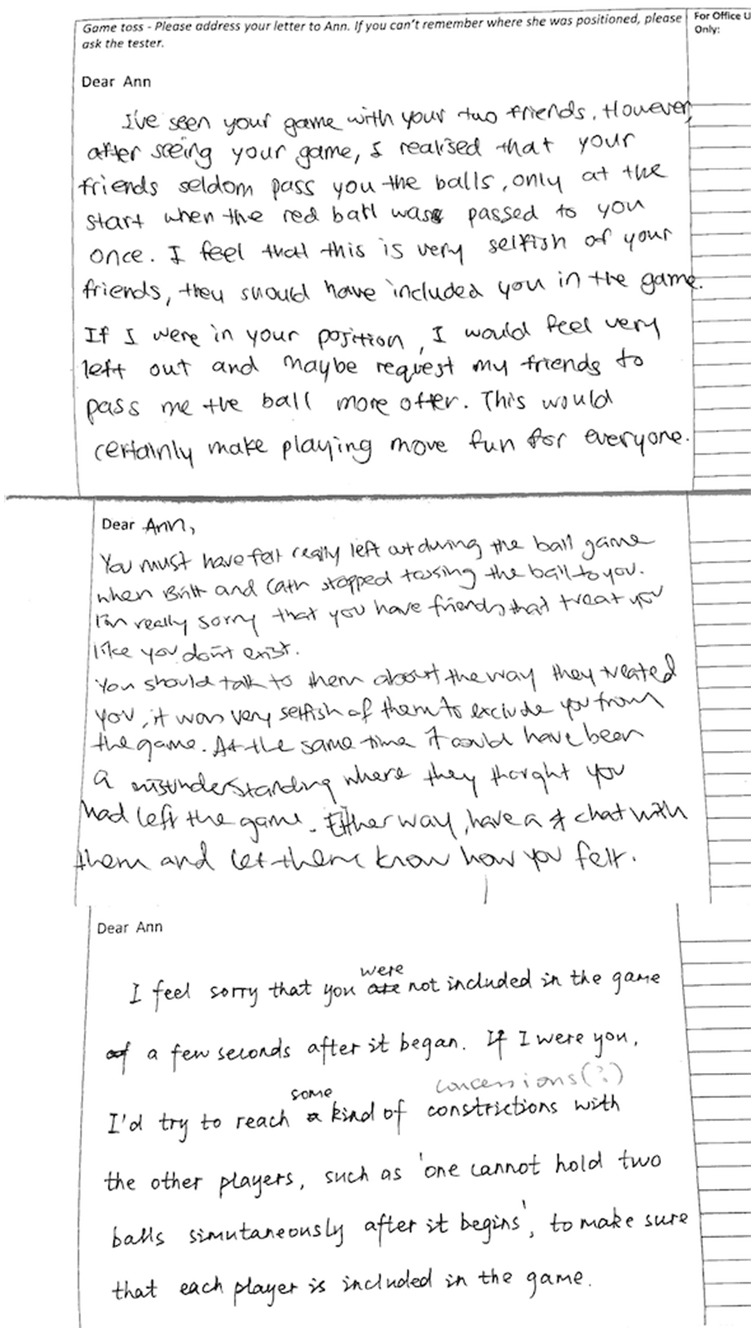 Game toss - Please address your letter to Ann. If you can't remember where she was positioned, please
ask the tester.
For Office U
Only:
Dear Ann
I've seen your game with your two friends. However,
after seeing your game, I realised that your
friends seldom pass you the balls, only at the
start when the red ball was passed to you
once. I feel that this is very selfish of your
friends, they should have included you in the game.
If I were in your position, I would feel very
left out and maybe request my friends to
pass me the ball more often. This would
certainly make playing more fun for everyone.
Dear Ann,
You must have felt really left out during the ball game
when Britt and Cath stopped tossing the ball to you.
I'm really sorry that you have friends that treat you
like you don't exist.
You should talk to them about the way they treated
you, it was very selfish of them to exclude you from
the game. At the same time it could have been
a misunderstanding where they thought you
had left the game. Either way, have a chat with
them and let them know how you felt.
Dear Ann
were
I feel sorry that you are not included in the game
of a few seconds after it began. If I were you,
some concessions(?)
I'd try to reach a kind of constrictions with
the other players, such as 'one cannot hold two
balls simutaneously after it begins', to make sure
that each player is included in the game.